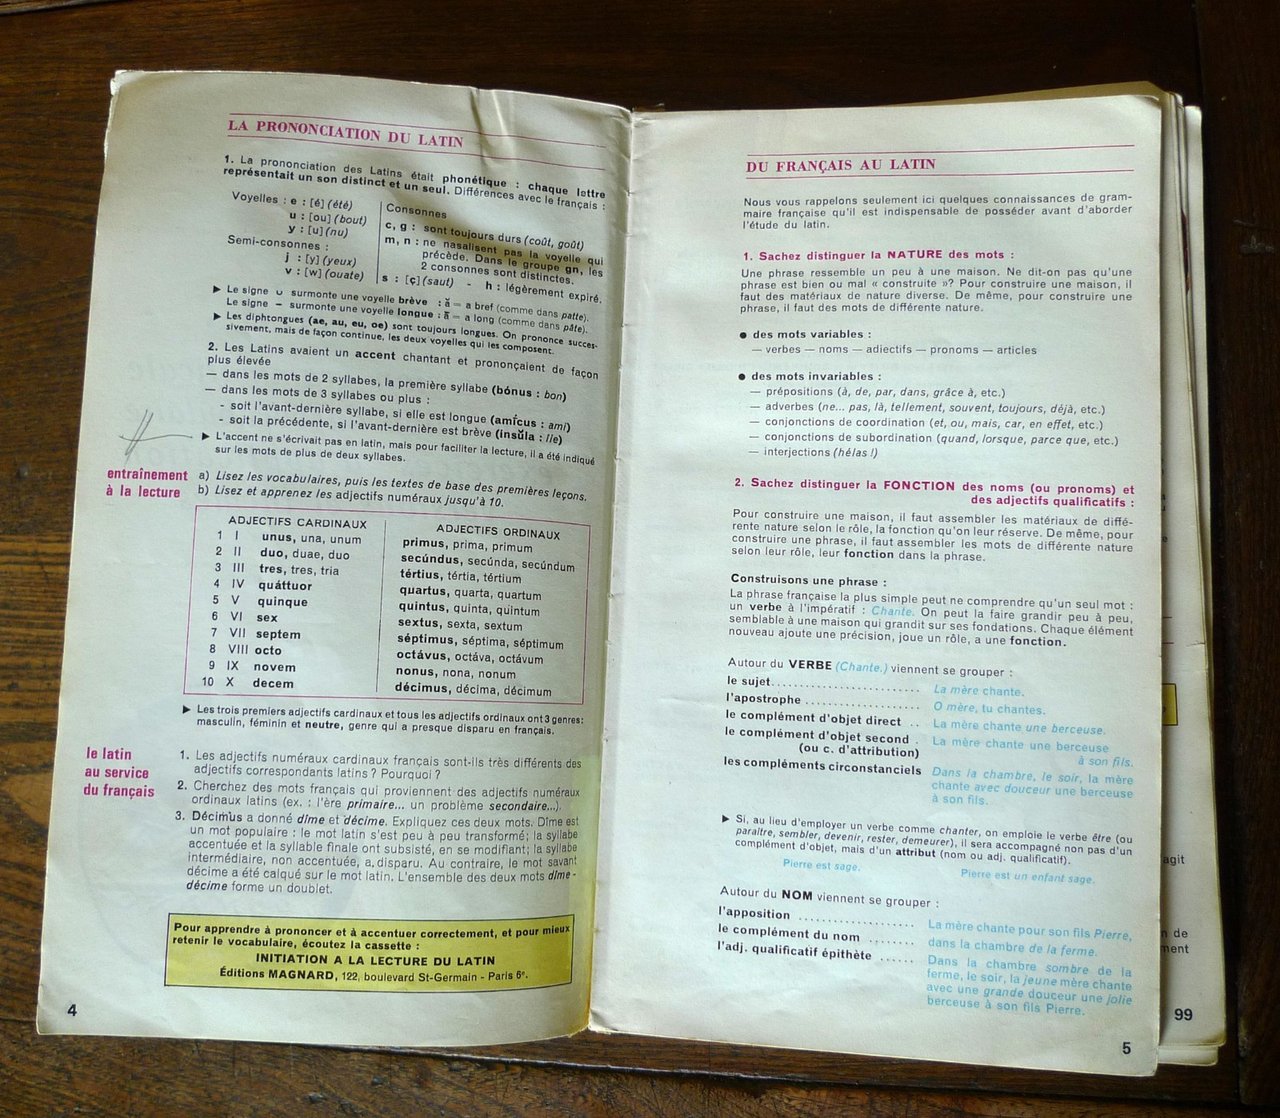 LA PRONONCIATION DU LATIN
1. La prononciation des Latins était phonétique : chaque lettre
représentait un son distinct et un seul. Différences avec le français :
Voyelles : e : [é] (été)
u : [ou] (bout)
y : [u] (nu)
Semi-consonnes :
j : [y] (yeux)
v : [w] (ouate)
Consonnes
c, g : sont toujours durs (coût, goût)
m, n : ne nasalisent pas la voyelle qui
précède. Dans le groupe gn, les
2 consonnes sont distinctes.
s : [ç] (saut) - h : légèrement expiré.
► Le signe ᴗ surmonte une voyelle brève : ă = a bref (comme dans patte).
Le signe – surmonte une voyelle longue : ā = a long (comme dans pâte).
► Les diphtongues (ae, au, eu, oe) sont toujours longues. On prononce succes-
sivement, mais de façon continue, les deux voyelles qui les composent.
2. Les Latins avaient un accent chantant et prononçaient de façon
plus élevée
— dans les mots de 2 syllabes, la première syllabe (bónus : bon)
— dans les mots de 3 syllabes ou plus :
- soit l'avant-dernière syllabe, si elle est longue (amī́cus : ami)
- soit la précédente, si l'avant-dernière est brève (ínsŭla : île)
► L'accent ne s'écrivait pas en latin, mais pour faciliter la lecture, il a été indiqué
sur les mots de plus de deux syllabes.
entraînement
à la lecture
a) Lisez les vocabulaires, puis les textes de base des premières leçons.
b) Lisez et apprenez les adjectifs numéraux jusqu'à 10.
ADJECTIFS CARDINAUX
1 I unus, una, unum
2 II duo, duae, duo
3 III tres, tres, tria
4 IV quáttuor
5 V quinque
6 VI sex
7 VII septem
8 VIII octo
9 IX novem
10 X decem
ADJECTIFS ORDINAUX
primus, prima, primum
secúndus, secúnda, secúndum
tértius, tértia, tértium
quartus, quarta, quartum
quintus, quinta, quintum
sextus, sexta, sextum
séptimus, séptima, séptimum
octávus, octáva, octávum
nonus, nona, nonum
décimus, décima, décimum
► Les trois premiers adjectifs cardinaux et tous les adjectifs ordinaux ont 3 genres:
masculin, féminin et neutre, genre qui a presque disparu en français.
le latin
au service
du français
1. Les adjectifs numéraux cardinaux français sont-ils très différents des
adjectifs correspondants latins ? Pourquoi ?
2. Cherchez des mots français qui proviennent des adjectifs numéraux
ordinaux latins (ex. : l'ère primaire... un problème secondaire...).
3. Décimus a donné dîme et décime. Expliquez ces deux mots. Dîme est
un mot populaire : le mot latin s'est peu à peu transformé; la syllabe
accentuée et la syllable finale ont subsisté, en se modifiant; la syllabe
intermédiaire, non accentuée, a disparu. Au contraire, le mot savant
décime a été calqué sur le mot latin. L'ensemble des deux mots dîme -
décime forme un doublet.
Pour apprendre à prononcer et à accentuer correctement, et pour mieux
retenir le vocabulaire, écoutez la cassette :
INITIATION A LA LECTURE DU LATIN
Éditions MAGNARD, 122, boulevard St-Germain - Paris 6e.
4
DU FRANÇAIS AU LATIN
Nous vous rappelons seulement ici quelques connaissances de gram-
maire française qu'il est indispensable de posséder avant d'aborder
l'étude du latin.
1. Sachez distinguer la NATURE des mots :
Une phrase ressemble un peu à une maison. Ne dit-on pas qu'une
phrase est bien ou mal « construite »? Pour construire une maison, il
faut des matériaux de nature diverse. De même, pour construire une
phrase, il faut des mots de différente nature.
● des mots variables :
— verbes — noms — adjectifs — pronoms — articles
● des mots invariables :
— prépositions (à, de, par, dans, grâce à, etc.)
— adverbes (ne... pas, là, tellement, souvent, toujours, déjà, etc.)
— conjonctions de coordination (et, ou, mais, car, en effet, etc.)
— conjonctions de subordination (quand, lorsque, parce que, etc.)
— interjections (hélas !)
2. Sachez distinguer la FONCTION des noms (ou pronoms) et
des adjectifs qualificatifs :
Pour construire une maison, il faut assembler les matériaux de diffé-
rente nature selon le rôle, la fonction qu'on leur réserve. De même, pour
construire une phrase, il faut assembler les mots de différente nature
selon leur rôle, leur fonction dans la phrase.
Construisons une phrase :
La phrase française la plus simple peut ne comprendre qu'un seul mot :
un verbe à l'impératif : Chante. On peut la faire grandir peu à peu,
semblable à une maison qui grandit sur ses fondations. Chaque élément
nouveau ajoute une précision, joue un rôle, a une fonction.
Autour du VERBE (Chante.) viennent se grouper :
le sujet........................... La mère chante.
l'apostrophe ..................... O mère, tu chantes.
le complément d'objet direct .. La mère chante une berceuse.
le complément d'objet second . La mère chante une berceuse
(ou c. d'attribution) à son fils.
les compléments circonstanciels Dans la chambre, le soir, la mère
chante avec douceur une berceuse
à son fils.
► Si, au lieu d'employer un verbe comme chanter, on emploie le verbe être (ou
paraître, sembler, devenir, rester, demeurer), il sera accompagné non pas d'un
complément d'objet, mais d'un attribut (nom ou adj. qualificatif).
Pierre est sage. Pierre est un enfant sage.
Autour du NOM viennent se grouper :
l'apposition ..................... La mère chante pour son fils Pierre,
le complément du nom ........ dans la chambre de la ferme.
l'adj. qualificatif épithète ...... Dans la chambre sombre de la
ferme, le soir, la jeune mère chante
avec une grande douceur une jolie
berceuse à son fils Pierre.
5
agit
n de
ment
99